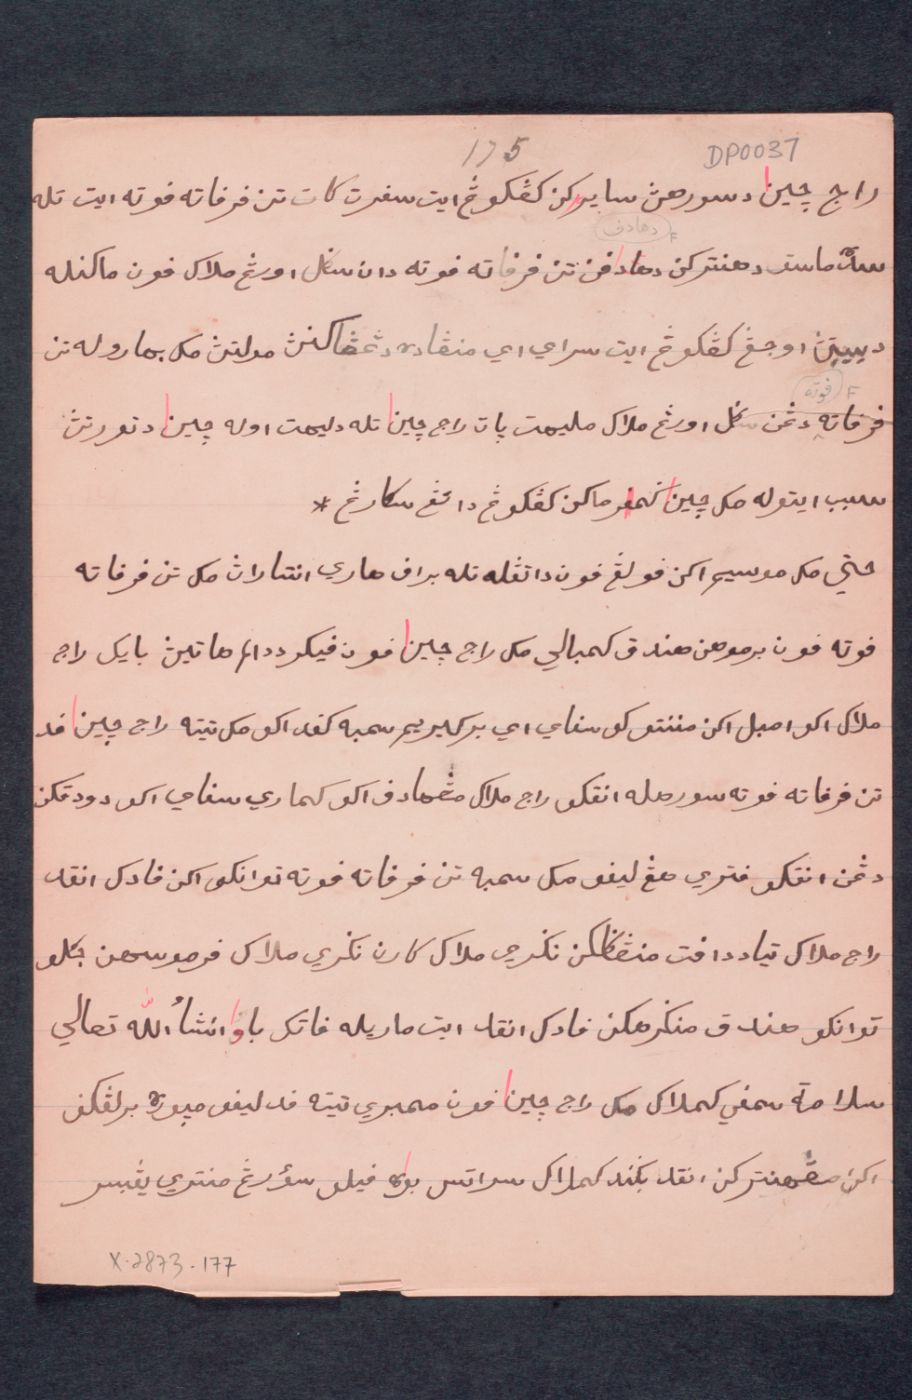 175
DP0037
راج چين دسورهن ساير كن كڠكوڠ ايت سڤرت كات تن فرفاته فوته ايت تله
دهادف
سكل ماستو دهنتركن دهادڤن تن فرفاته فوته دان سكل اورڠ ملاك فون ماكنله
دبيبتڽ اوجڠ كڠكوڠ ايت سراي اي منڠاده دڠڤاكنڽ مولتڽ مك بهارو له تن
فوته
فرفاته دڠن سكل اورڠ ملاك مليهت ڤات راج چين تله دليهت اوله چين دتوررتڽ
سبب ايتوله مك چين ڤمڤر ماكن كڠكوڠ داتڠ سكارڠ *
حتي مك موسيم اكن فولڠ فون داتڠله تله براف هاري انتاراڽ مك تن فرفاته
فوته فون برموهن هندق كمبالي مك راج چين فون فيكر ددالم هاتيڽ بايك راج
ملاك اكو امبل اكن مننتو كو سفاي اي بركيريم سمبه كفد اكو مك تيته راج چين فد
تن فرفاته فوته سورهله انقكو راج ملاك مڠهادف اكو كماري سفاي اكو دودقكن
دڠن انقكو فتري هڠ ليفو مك سمبه تن فرفاته فوته توانكو اكن فادك انقد
راج ملاك تياد دافت منڠڬلكن نڬري ملاك كارن نڬري ملاك فرموسهن جكلو
توانكو هندق منڬرهكن فادك انقد ايت ماريله فاتك باوا انشاء الله تعالى
سلامة سمفي كملاك مك راج چين فون ممبري تيته فد ليفو ميوره برلڠكف
اكن مڠهنتركن انقد بڬند كملاك سراتس بوه فيلو سؤرڠ منتري يڠبسر
X.2873.177